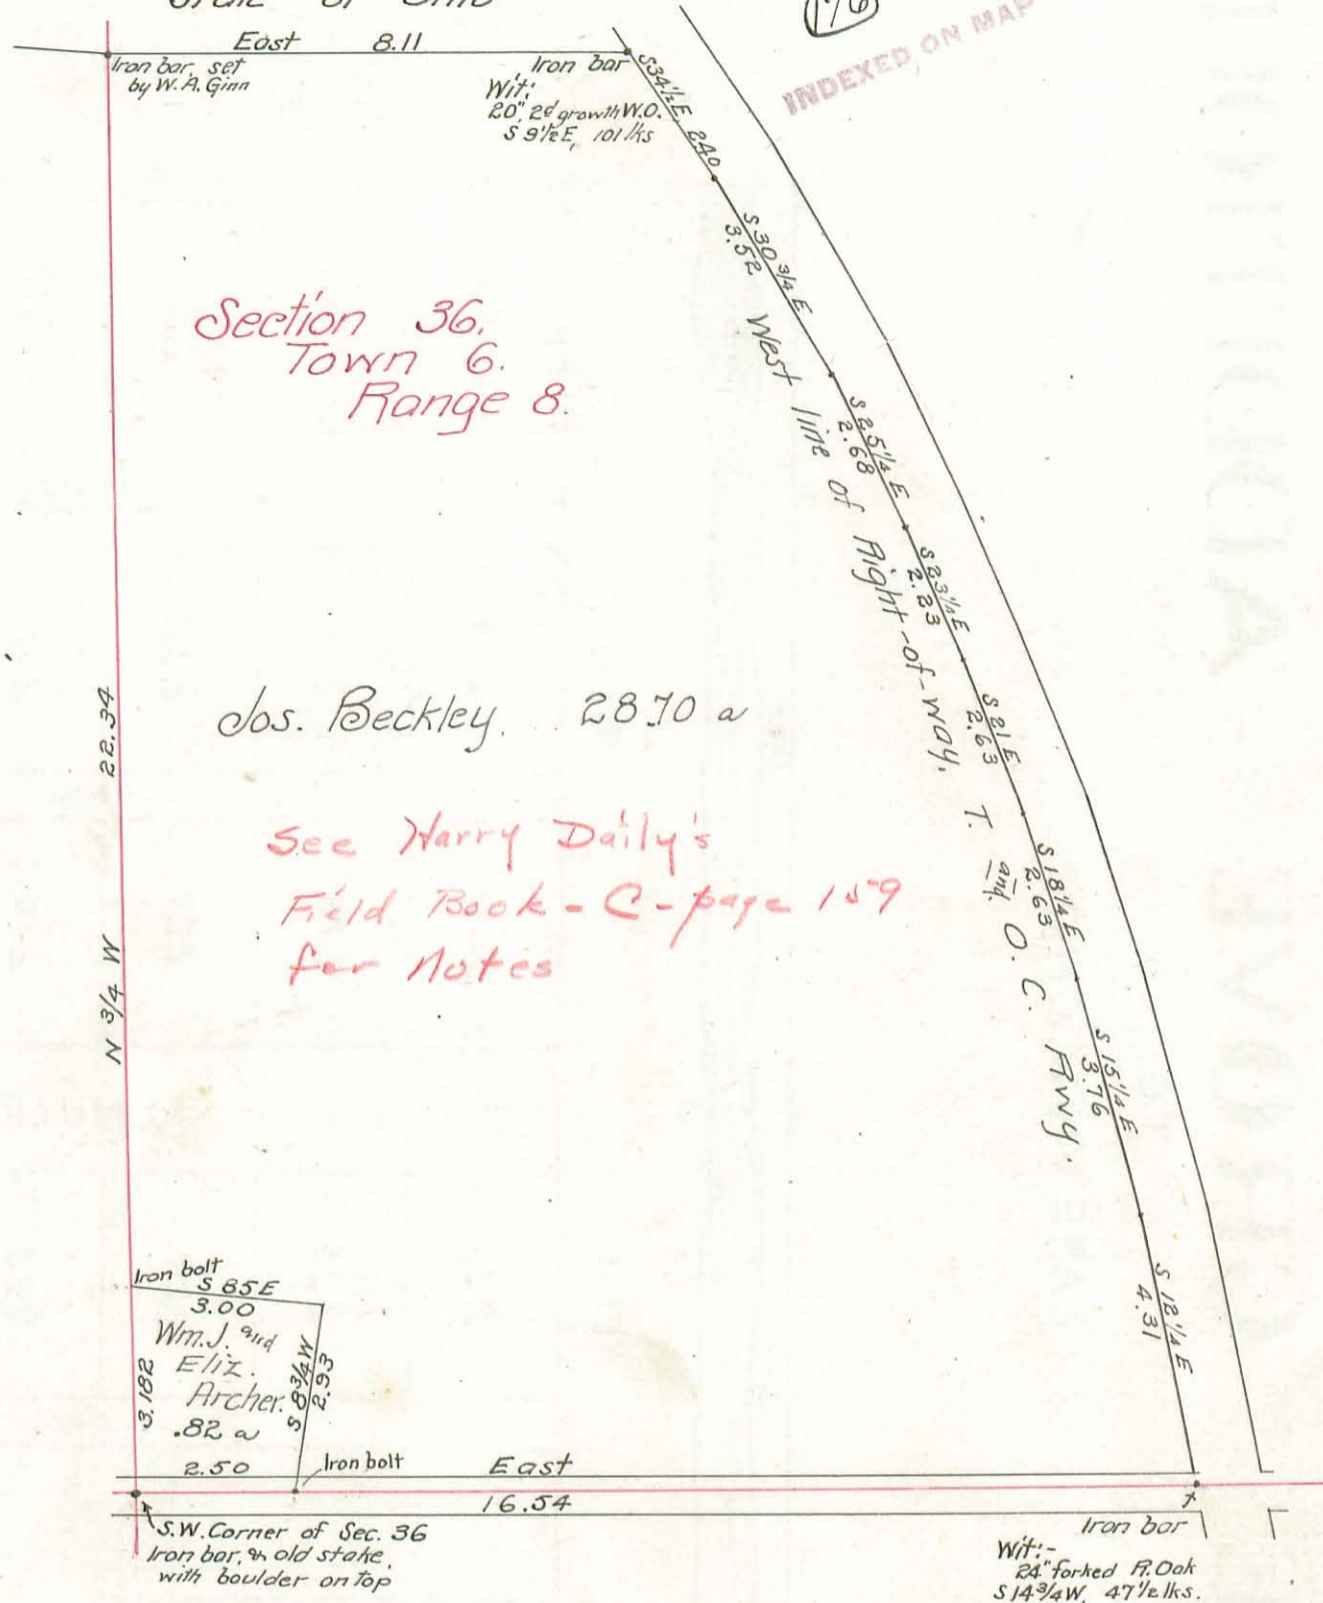 State of Ohio
176
INDEXED ON MAP
East 8.11
Iron bar, set
by W. A. Ginn
Iron bar
Wit:
20", 2d growth W.O.
S 9 1/2 E, 101 lks
S 34 1/2 E, 2.40
S 30 3/4 E
3.52
S 25 1/4 E
2.68
S 23 1/4 E
2.23
S 21 E
2.63
S 18 1/4 E
2.63
S 15 1/4 E
3.76
S 12 1/4 E
4.31
West line of Right-of-way, T. and O. C. Rwy.
Section 36.
Town 6.
Range 8.
N 3/4 W 22.34
Jos. Beckley. 28.70 a
See Harry Daily's
Field Book - C - page 159
for Notes
Iron bolt
S 85 E
3.00
Wm. J. and
Eliz.
Archer.
.82 a
3.182
S 8 3/4 W
2.93
2.50
Iron bolt
East
16.54
S.W. Corner of Sec. 36
Iron bar, & old stake,
with boulder on top
Iron bar
Wit:-
24" forked R. Oak
S 14 3/4 W, 47 1/2 lks.